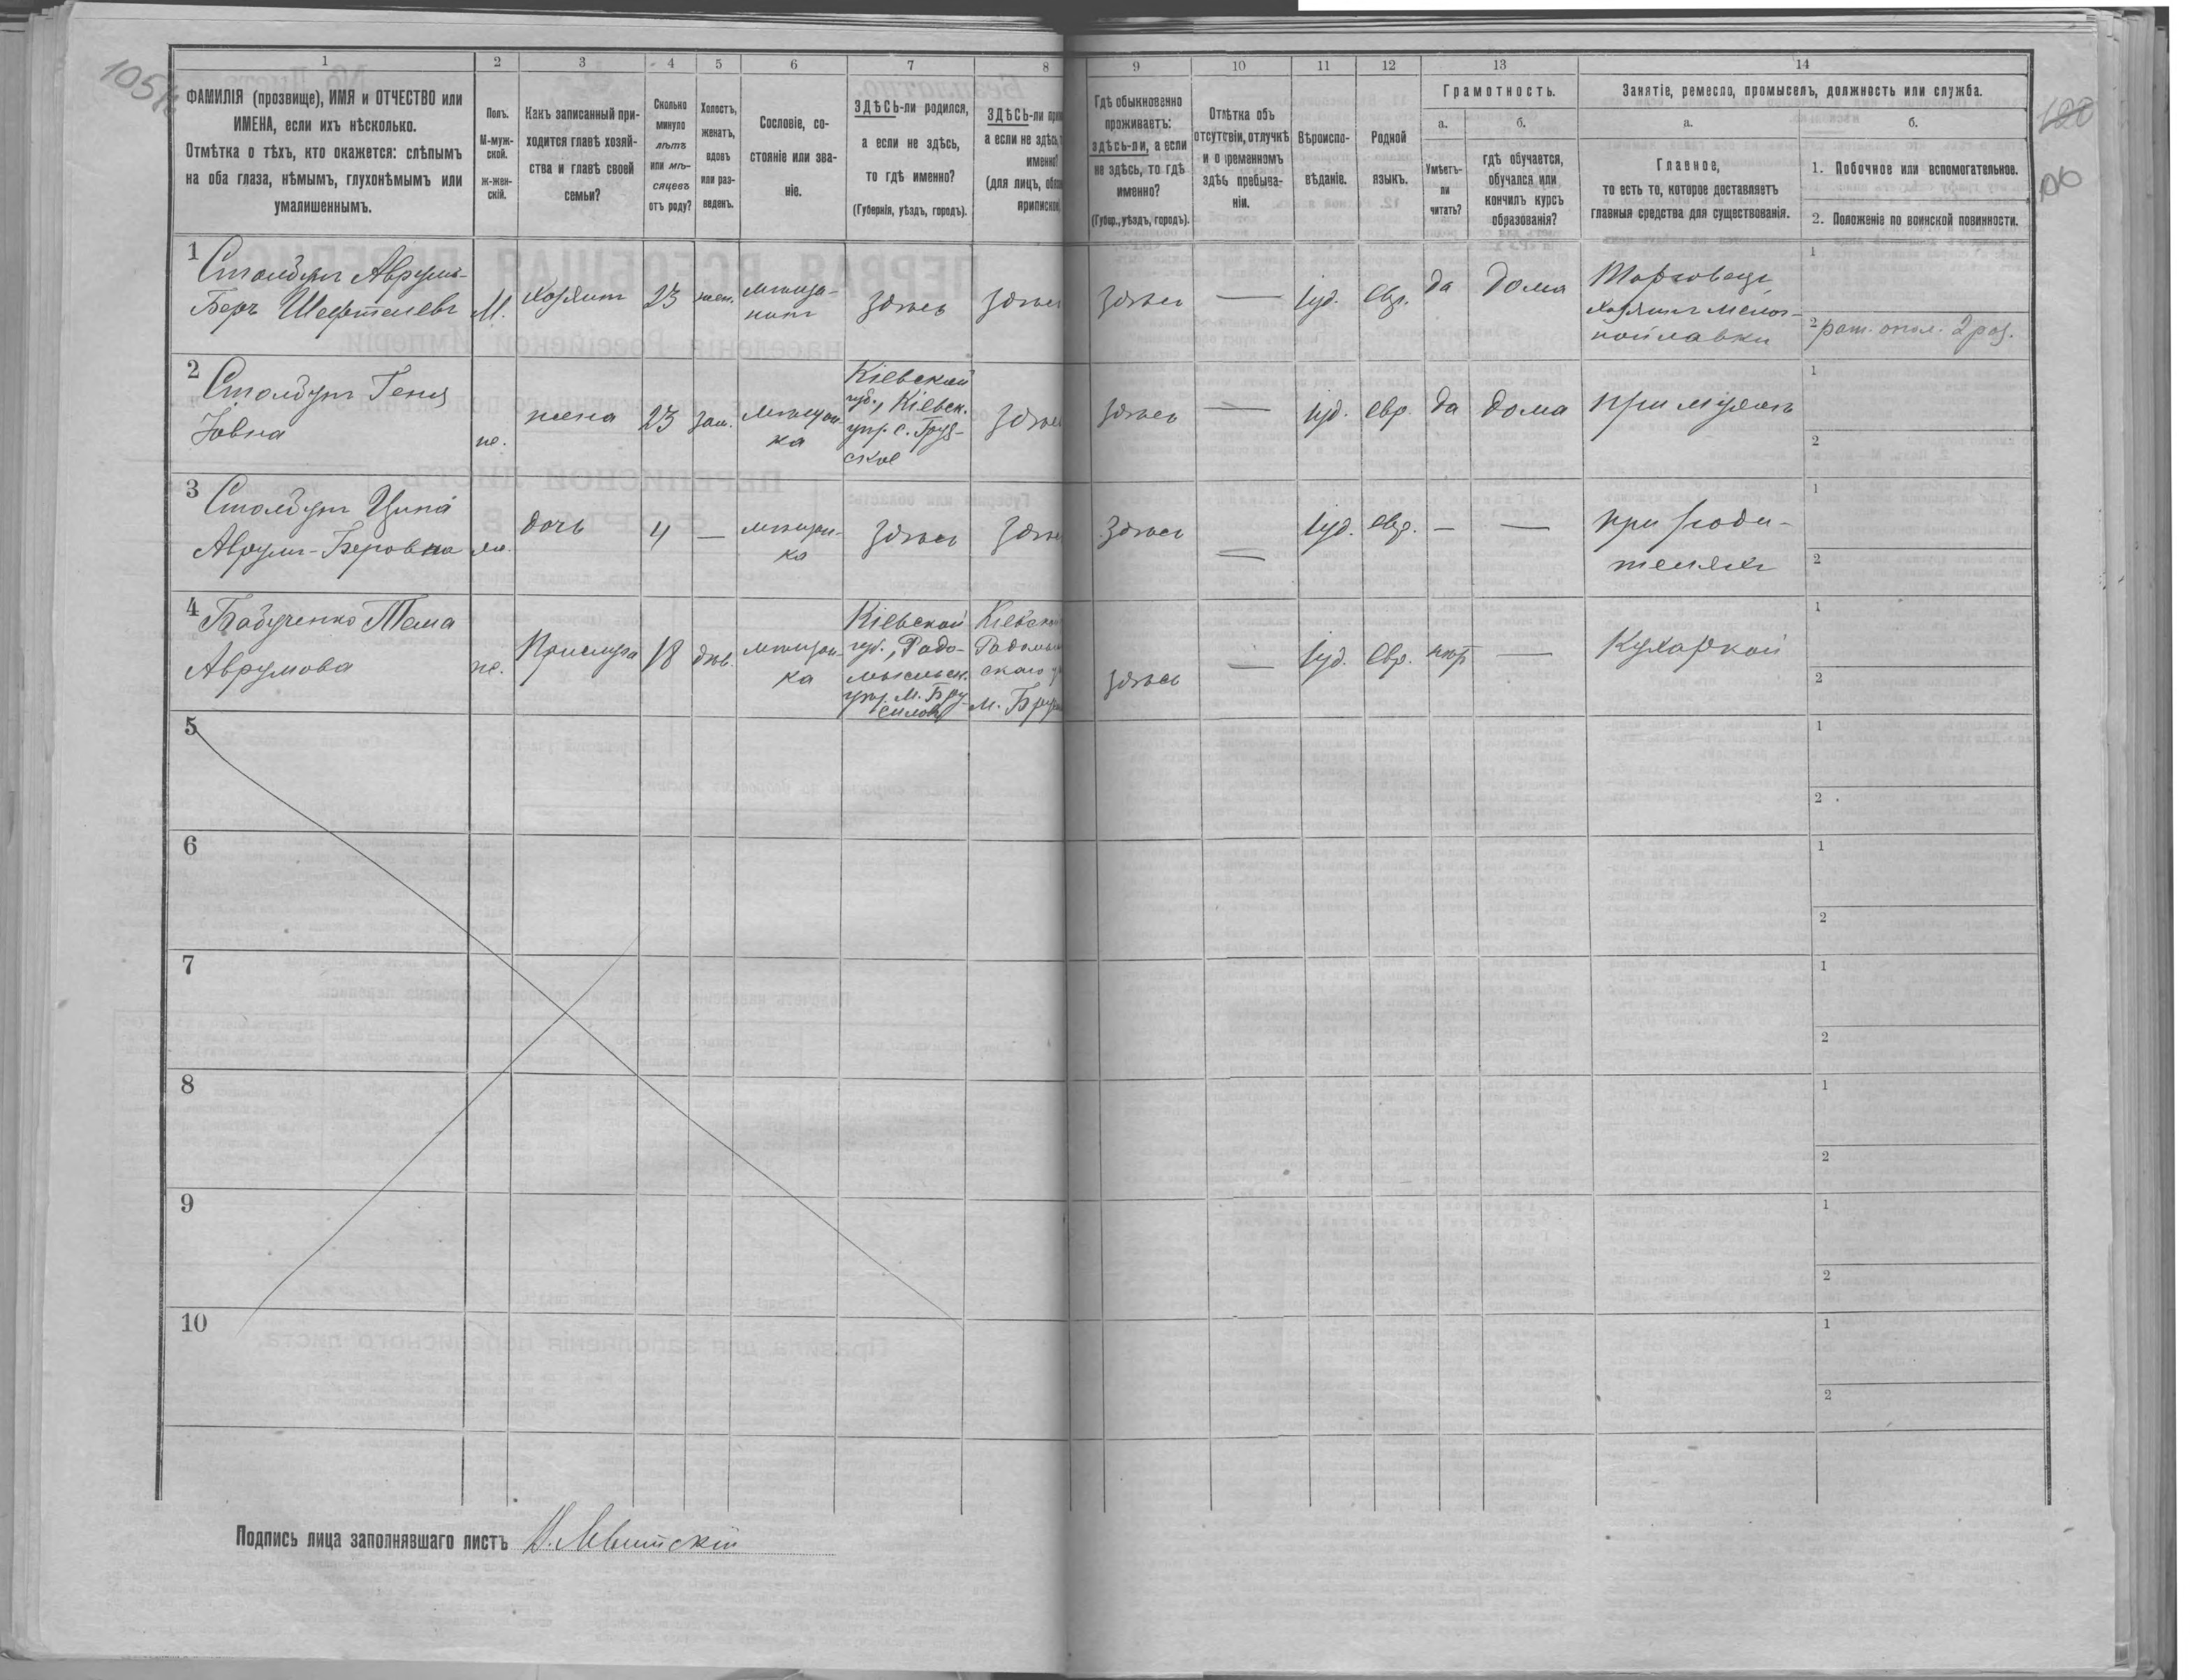 105
1 2 3 4 5 6 7 8 9 10 11 12 13 14
ФАМИЛІЯ (прозвище), ИМЯ и ОТЧЕСТВО или
ИМЕНА, если ихъ нѣсколько.
Отмѣтка о тѣхъ, кто окажется: слѣпымъ
на оба глаза, нѣмымъ, глухонѣмымъ или
умалишеннымъ.
Полъ.
М-муж-
ской.
ж-жен-
скій.
Какъ записанный при-
ходится главѣ хозяй-
ства и главѣ своей
семьи?
Сколько
минуло
лѣтъ
или мѣ-
сяцевъ
отъ роду?
Холостъ,
женатъ,
вдовъ
или раз-
веденъ.
Сословіе, со-
стояніе или зва-
ніе.
ЗДѢСЬ-ли родился,
а если не здѣсь,
то гдѣ именно?
(Губернія, уѣздъ, городъ).
ЗДѢСЬ-ли
а если не здѣсь,
именно?
(для лицъ,
Гдѣ обыкновенно
проживаетъ:
здѣсь-ли, а если
не здѣсь, то гдѣ
именно?
(Губер., уѣздъ, городъ).
Отмѣтка объ
отсутствіи, отлучкѣ
и о временномъ
здѣсь пребыва-
ніи.
Вѣроиспо-
вѣданіе.
Родной
языкъ.
Грамотность.
а.
Умѣетъ-
ли
читать?
б.
гдѣ обучается,
обучался или
кончилъ курсъ
образованія?
Занятіе, ремесло, промыселъ, должность или служба.
а.
Главное,
то есть то, которое доставляетъ
главныя средства для существованія.
б.
1. Побочное или вспомогательное.
2. Положеніе по воинской повинности.
120
106
1
Аврумъ-
Беръ Шефтелевъ
М.
Хозяинъ
23
жен.
мѣща-
нинъ
здѣсь
здѣсь
здѣсь
—
Іуд.
евр.
да
дома
Торговецъ,
хозяинъ мелоч-
ной лавки
1
2 рат. опол. 2 раз.
2
Геня
ж.
жена
23
зам.
мѣщан-
ка
Кіевской
губ., Кіевск.
уѣз. с.
ское
здѣсь
здѣсь
—
Іуд.
евр.
да
дома
при мужѣ
1
2
3
Ципа
Аврумъ-Беровна
ж.
дочь
4
—
мѣщан-
ка
здѣсь
здѣсь
здѣсь
—
Іуд.
евр.
—
—
при роди-
теляхъ
1
2
4
Тема
Аврумова
ж.
Прислуга
18
дѣв.
мѣщан-
ка
Кіевской
губ., Радо-
мысльск.
уѣз. М. Бру-
силовъ
Кіевской
Радомысль-
скаго
м.
здѣсь
—
Іуд.
евр.
нѣт
—
Кухаркой
1
2
5
1
2
6
1
2
7
1
2
8
1
2
9
1
2
10
1
2
Подпись лица заполнявшаго листъ